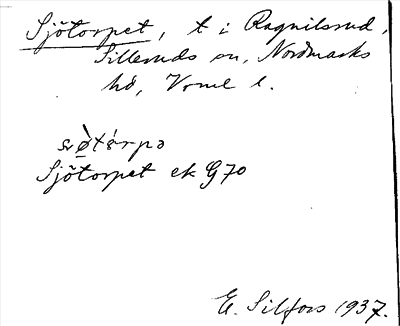 Sjötorpet, t i Ragnilsrud,
Silleruds sn, Nordmarks
hd, Vrml l.
Sjötorpet ek G70
E. Silfors 1937.